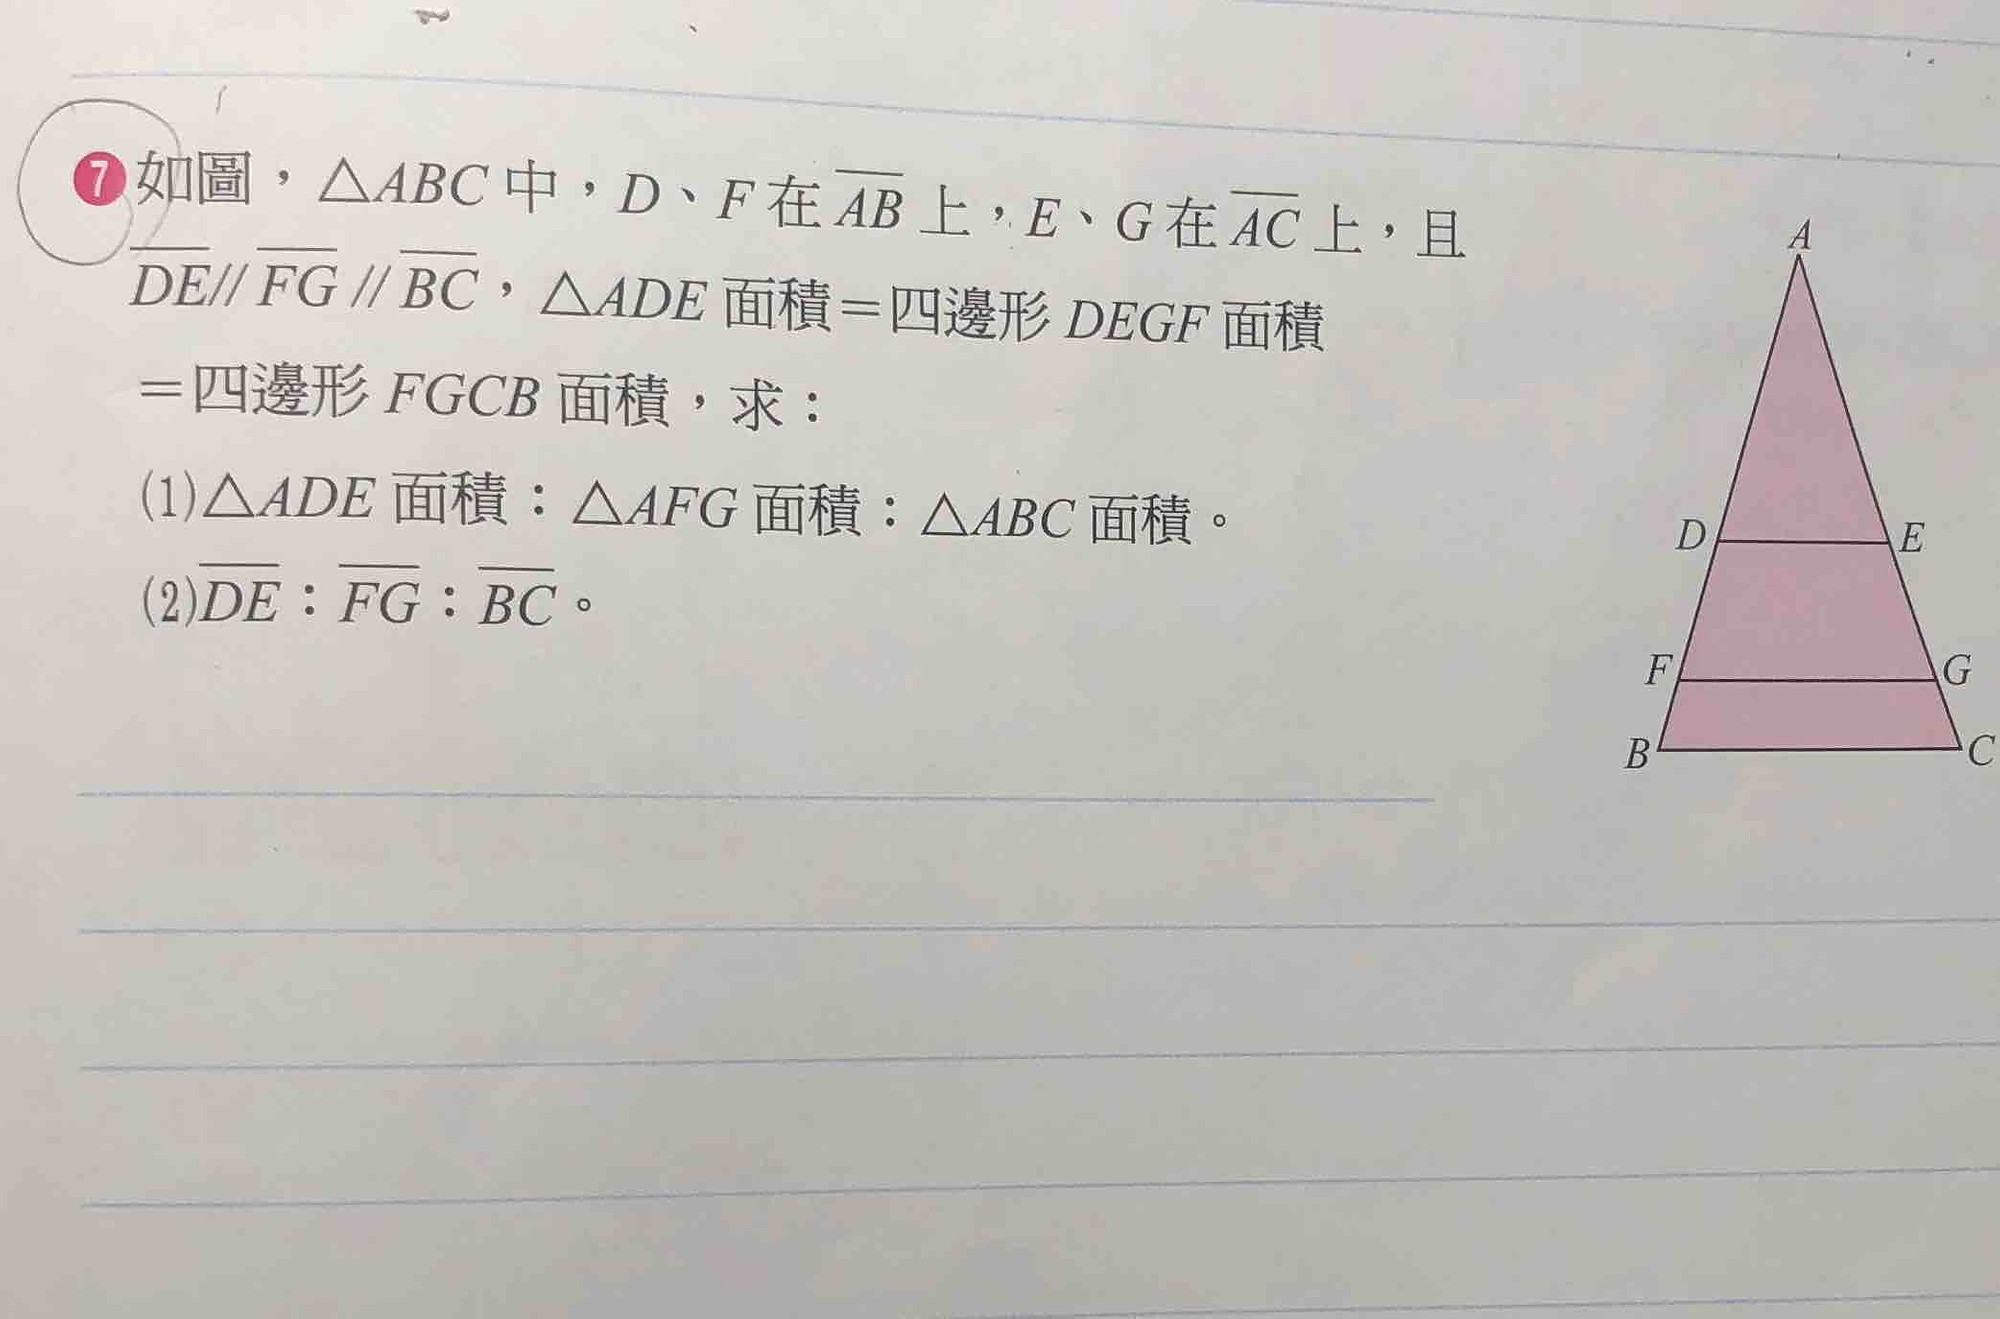 7 如圖，△ABC 中，D、F 在 AB 上，E、G 在 AC 上，且
DE // FG // BC，△ADE 面積＝四邊形 DEGF 面積
＝四邊形 FGCB 面積，求：
(1)△ADE 面積：△AFG 面積：△ABC 面積。
(2)DE：FG：BC。
A
D E
F G
B C